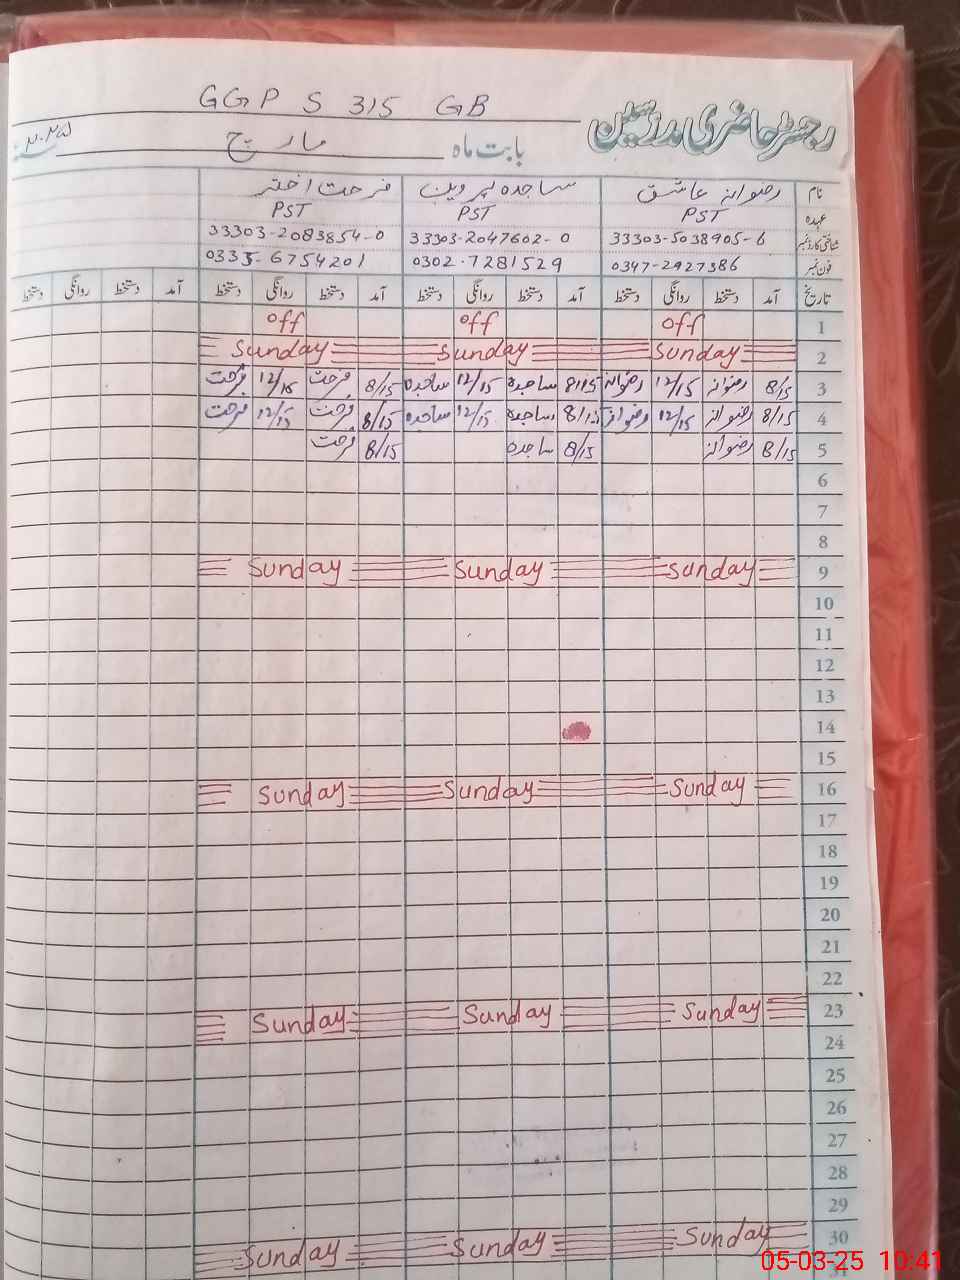 GGPS 315 GB
رجسٹر حاضری مدرسین
بابت ماہ مارچ ۲۰۲۵
نام رضوانہ عاشق ساجدہ پروین فرحت اختر
عہدہ PST PST PST
شناختی کارڈ نمبر 33303-5038905-6 33303-2047602-0 33303-2083854-0
فون نمبر 0347-2927386 0302-7281529 0335-6754201
تاریخ آمد دستخط روانگی دستخط آمد دستخط روانگی دستخط آمد دستخط روانگی دستخط آمد دستخط روانگی دستخط
1 off off off
2 Sunday Sunday Sunday
3 8/15 رضوانہ 12/15 رضوانہ 8/15 ساجدہ 12/15 ساجدہ 8/15 فرحت 12/15 فرحت
4 8/15 رضوانہ 12/15 رضوانہ 8/15 ساجدہ 12/15 ساجدہ 8/15 فرحت 12/15 فرحت
5 8/15 رضوانہ 8/15 ساجدہ 8/15 فرحت
6
7
8
9 Sunday Sunday Sunday
10
11
12
13
14
15
16 Sunday Sunday Sunday
17
18
19
20
21
22
23 Sunday Sunday Sunday
24
25
26
27
28
29
30 Sunday Sunday Sunday
31
05-03-25 10:41